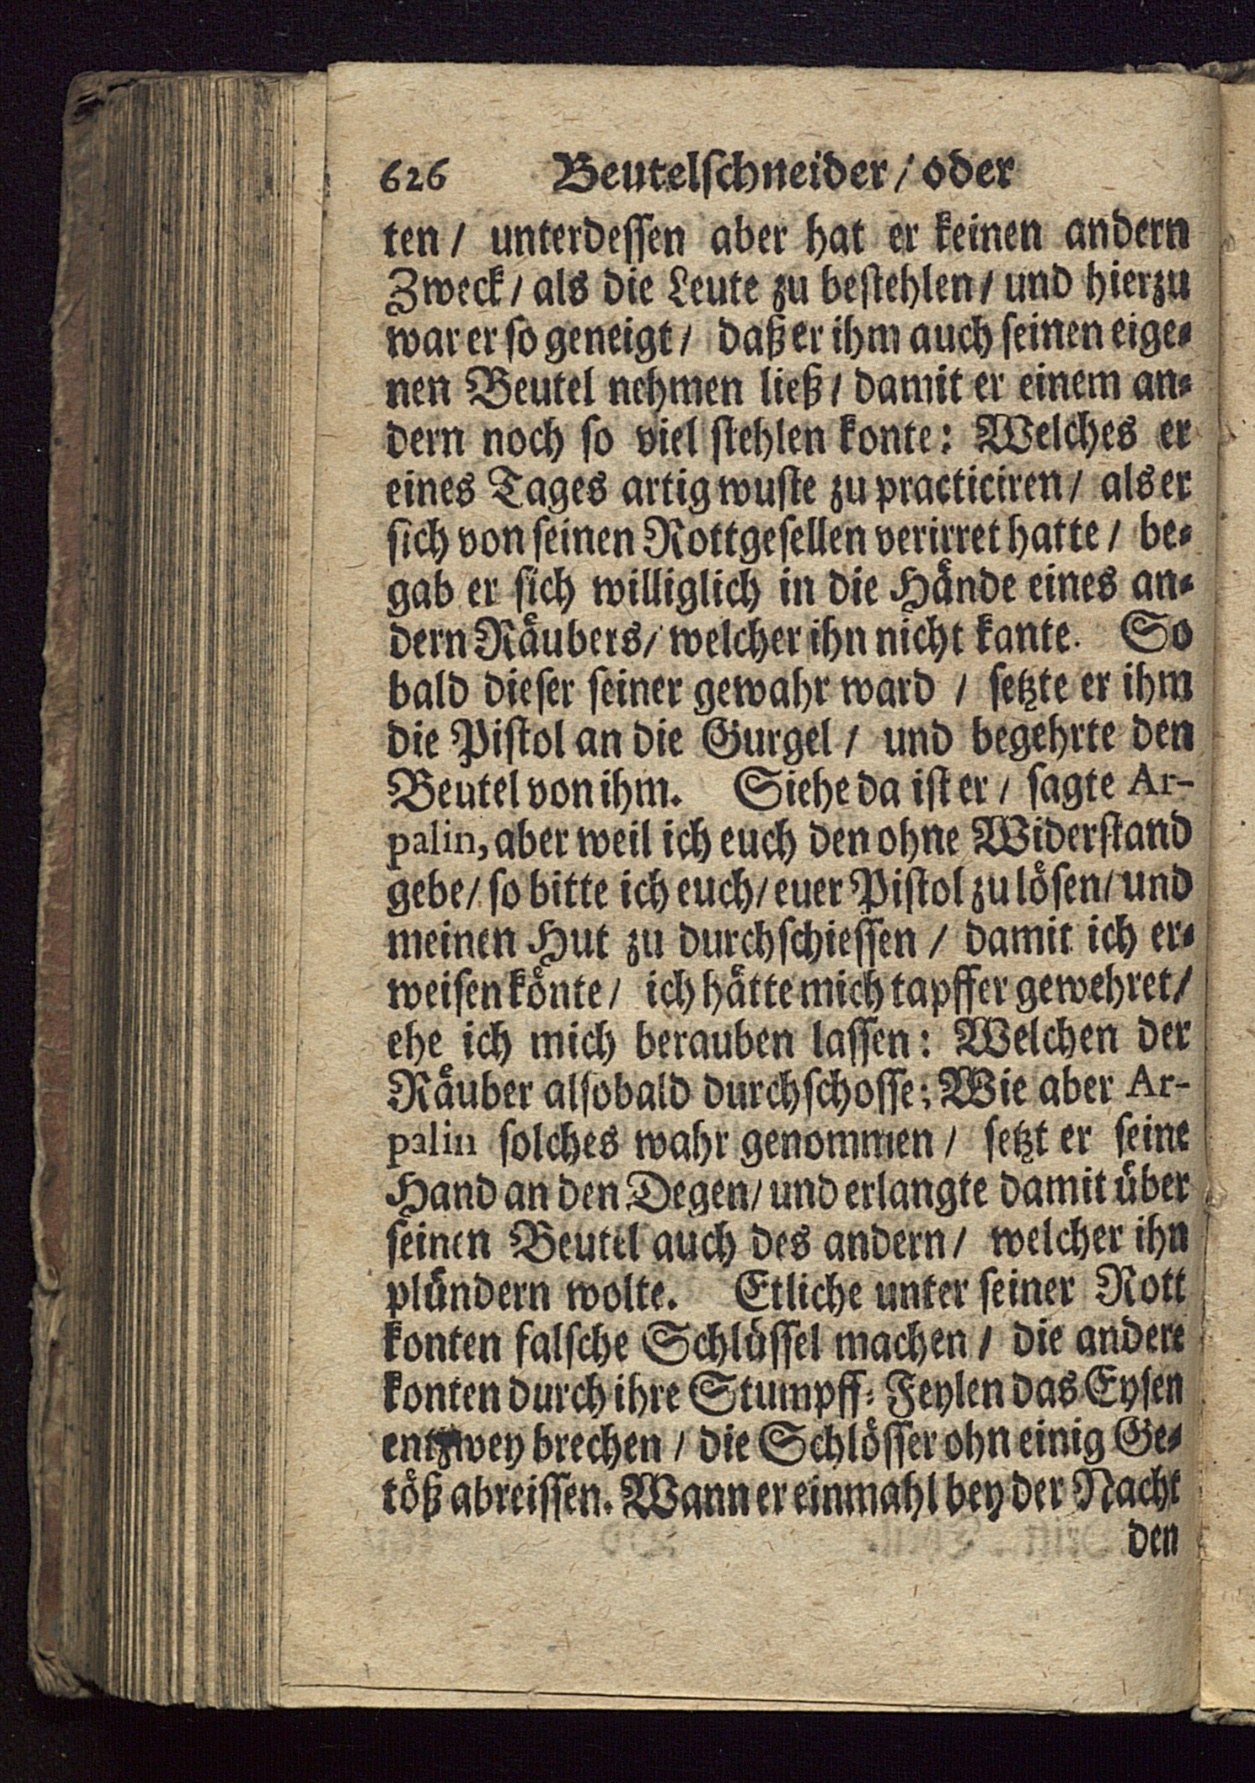 626 Beutelſchneider / oder
ten / unterdeſſen aber hat er keinen andern
Zweck / als die Leute zu beſtehlen / und hierzu
war er ſo geneigt / daß er ihm auch ſeinen eige⸗
nen Beutel nehmen ließ / damit er einem an⸗
dern noch ſo viel ſtehlen konte: Welches er
eines Tages artig wuſte zu practiciren / als er
ſich von ſeinen Rottgeſellen verirret hatte / be⸗
gab er ſich williglich in die Haͤnde eines an⸗
dern Raͤubers / welcher ihn nicht kante. So
bald dieſer ſeiner gewahr ward / ſetzte er ihm
die Piſtol an die Gurgel / und begehrte den
Beutel von ihm. Siehe da iſt er / ſagte Ar-
palin, aber weil ich euch den ohne Widerſtand
gebe / ſo bitte ich euch / euer Piſtol zu loͤſen / und
meinen Hut zu durchſchieſſen / damit ich er⸗
weiſen koͤnte / ich haͤtte mich tapffer gewehret /
ehe ich mich berauben laſſen: Welchen der
Raͤuber alſobald durchſchoſſe; Wie aber Ar-
palin ſolches wahr genommen / ſetzt er ſeine
Hand an den Degen / und erlangte damit uͤber
ſeinen Beutel auch des andern / welcher ihn
pluͤndern wolte. Etliche unter ſeiner Rott
konten falſche Schluͤſſel machen / die andere
konten durch ihre Stumpff⸗Feylen das Eyſen
entzwey brechen / die Schloͤſſer ohn einig Ge⸗
toͤß abreiſſen. Wann er einmahl bey der Nacht
den